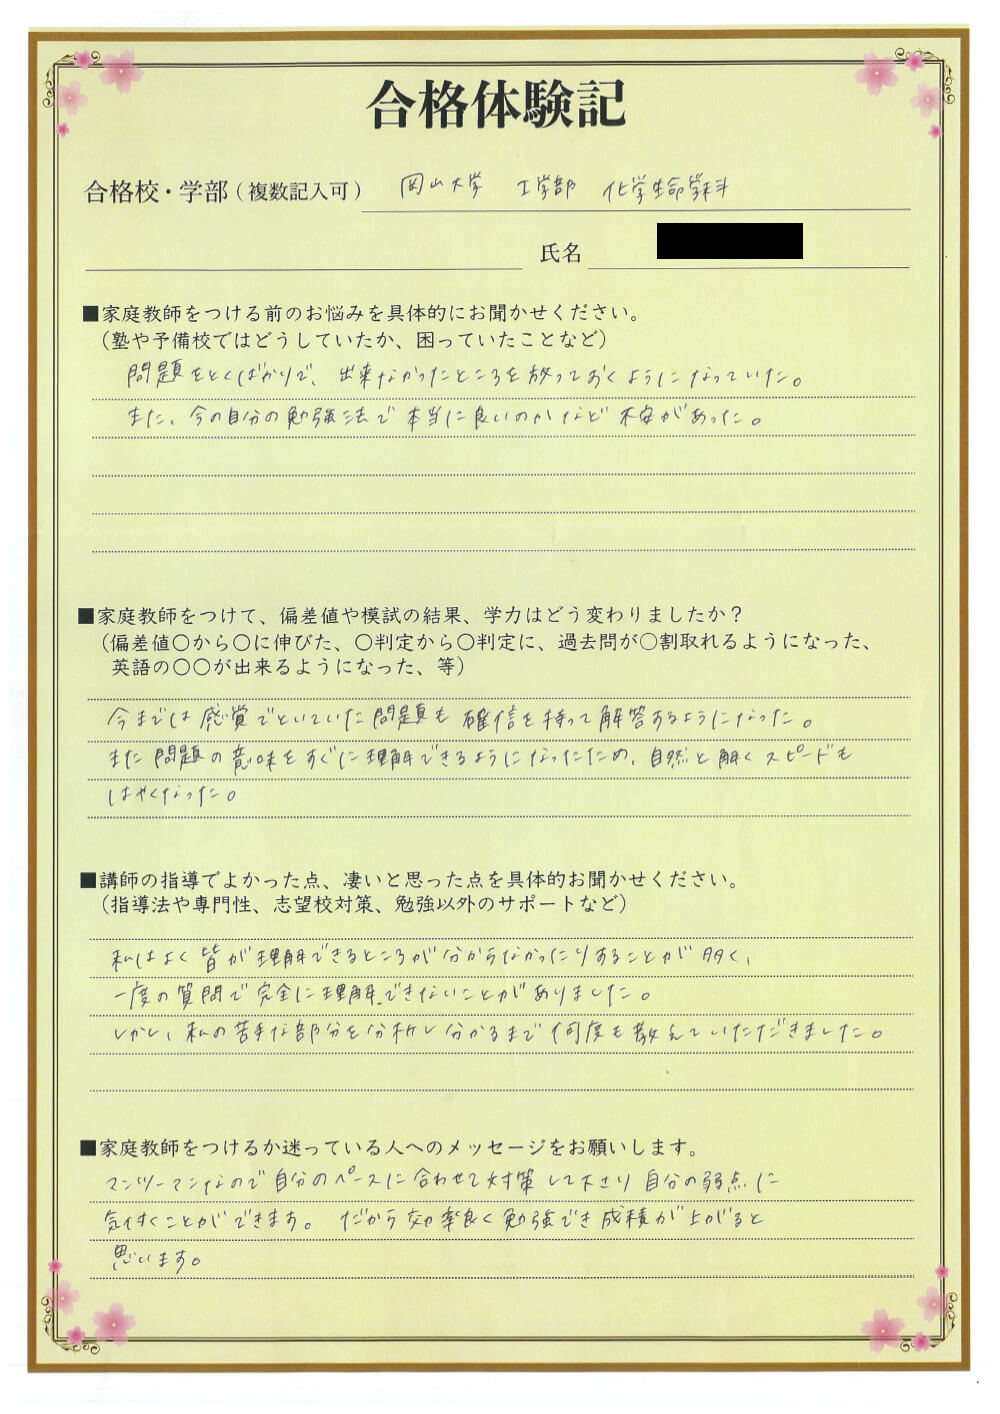 合格体験記
合格校・学部（複数記入可） 岡山大学 工学部 化学生命学科
氏名
■家庭教師をつける前のお悩みを具体的にお聞かせください。
（塾や予備校ではどうしていたか、困っていたことなど）
問題をとくばかりで、出来なかったところを放っておくようになっていた。
また、今の自分の勉強法で本当に良いのかなど不安があった。
■家庭教師をつけて、偏差値や模試の結果、学力はどう変わりましたか？
（偏差値〇から〇に伸びた、〇判定から〇判定に、過去問が〇割取れるようになった、
英語の〇〇が出来るようになった、等）
今までは感覚でといていた問題も確信を持って解答するようになった。
また問題の意味をすぐに理解できるようになったため、自然と解くスピードも
はやくなった。
■講師の指導でよかった点、凄いと思った点を具体的お聞かせください。
（指導法や専門性、志望校対策、勉強以外のサポートなど）
私はよく皆が理解できるところが分からなかったりすることが多く、
一度の質問で完全に理解できないことがありました。
しかし、私の苦手な部分を分析し分かるまで何度も教えていただきました。
■家庭教師をつけるか迷っている人へのメッセージをお願いします。
マンツーマンなので自分のペースに合わせて対策して下さり自分の弱点に
気付くことができます。だから効率良く勉強でき成績が上がると
思います。